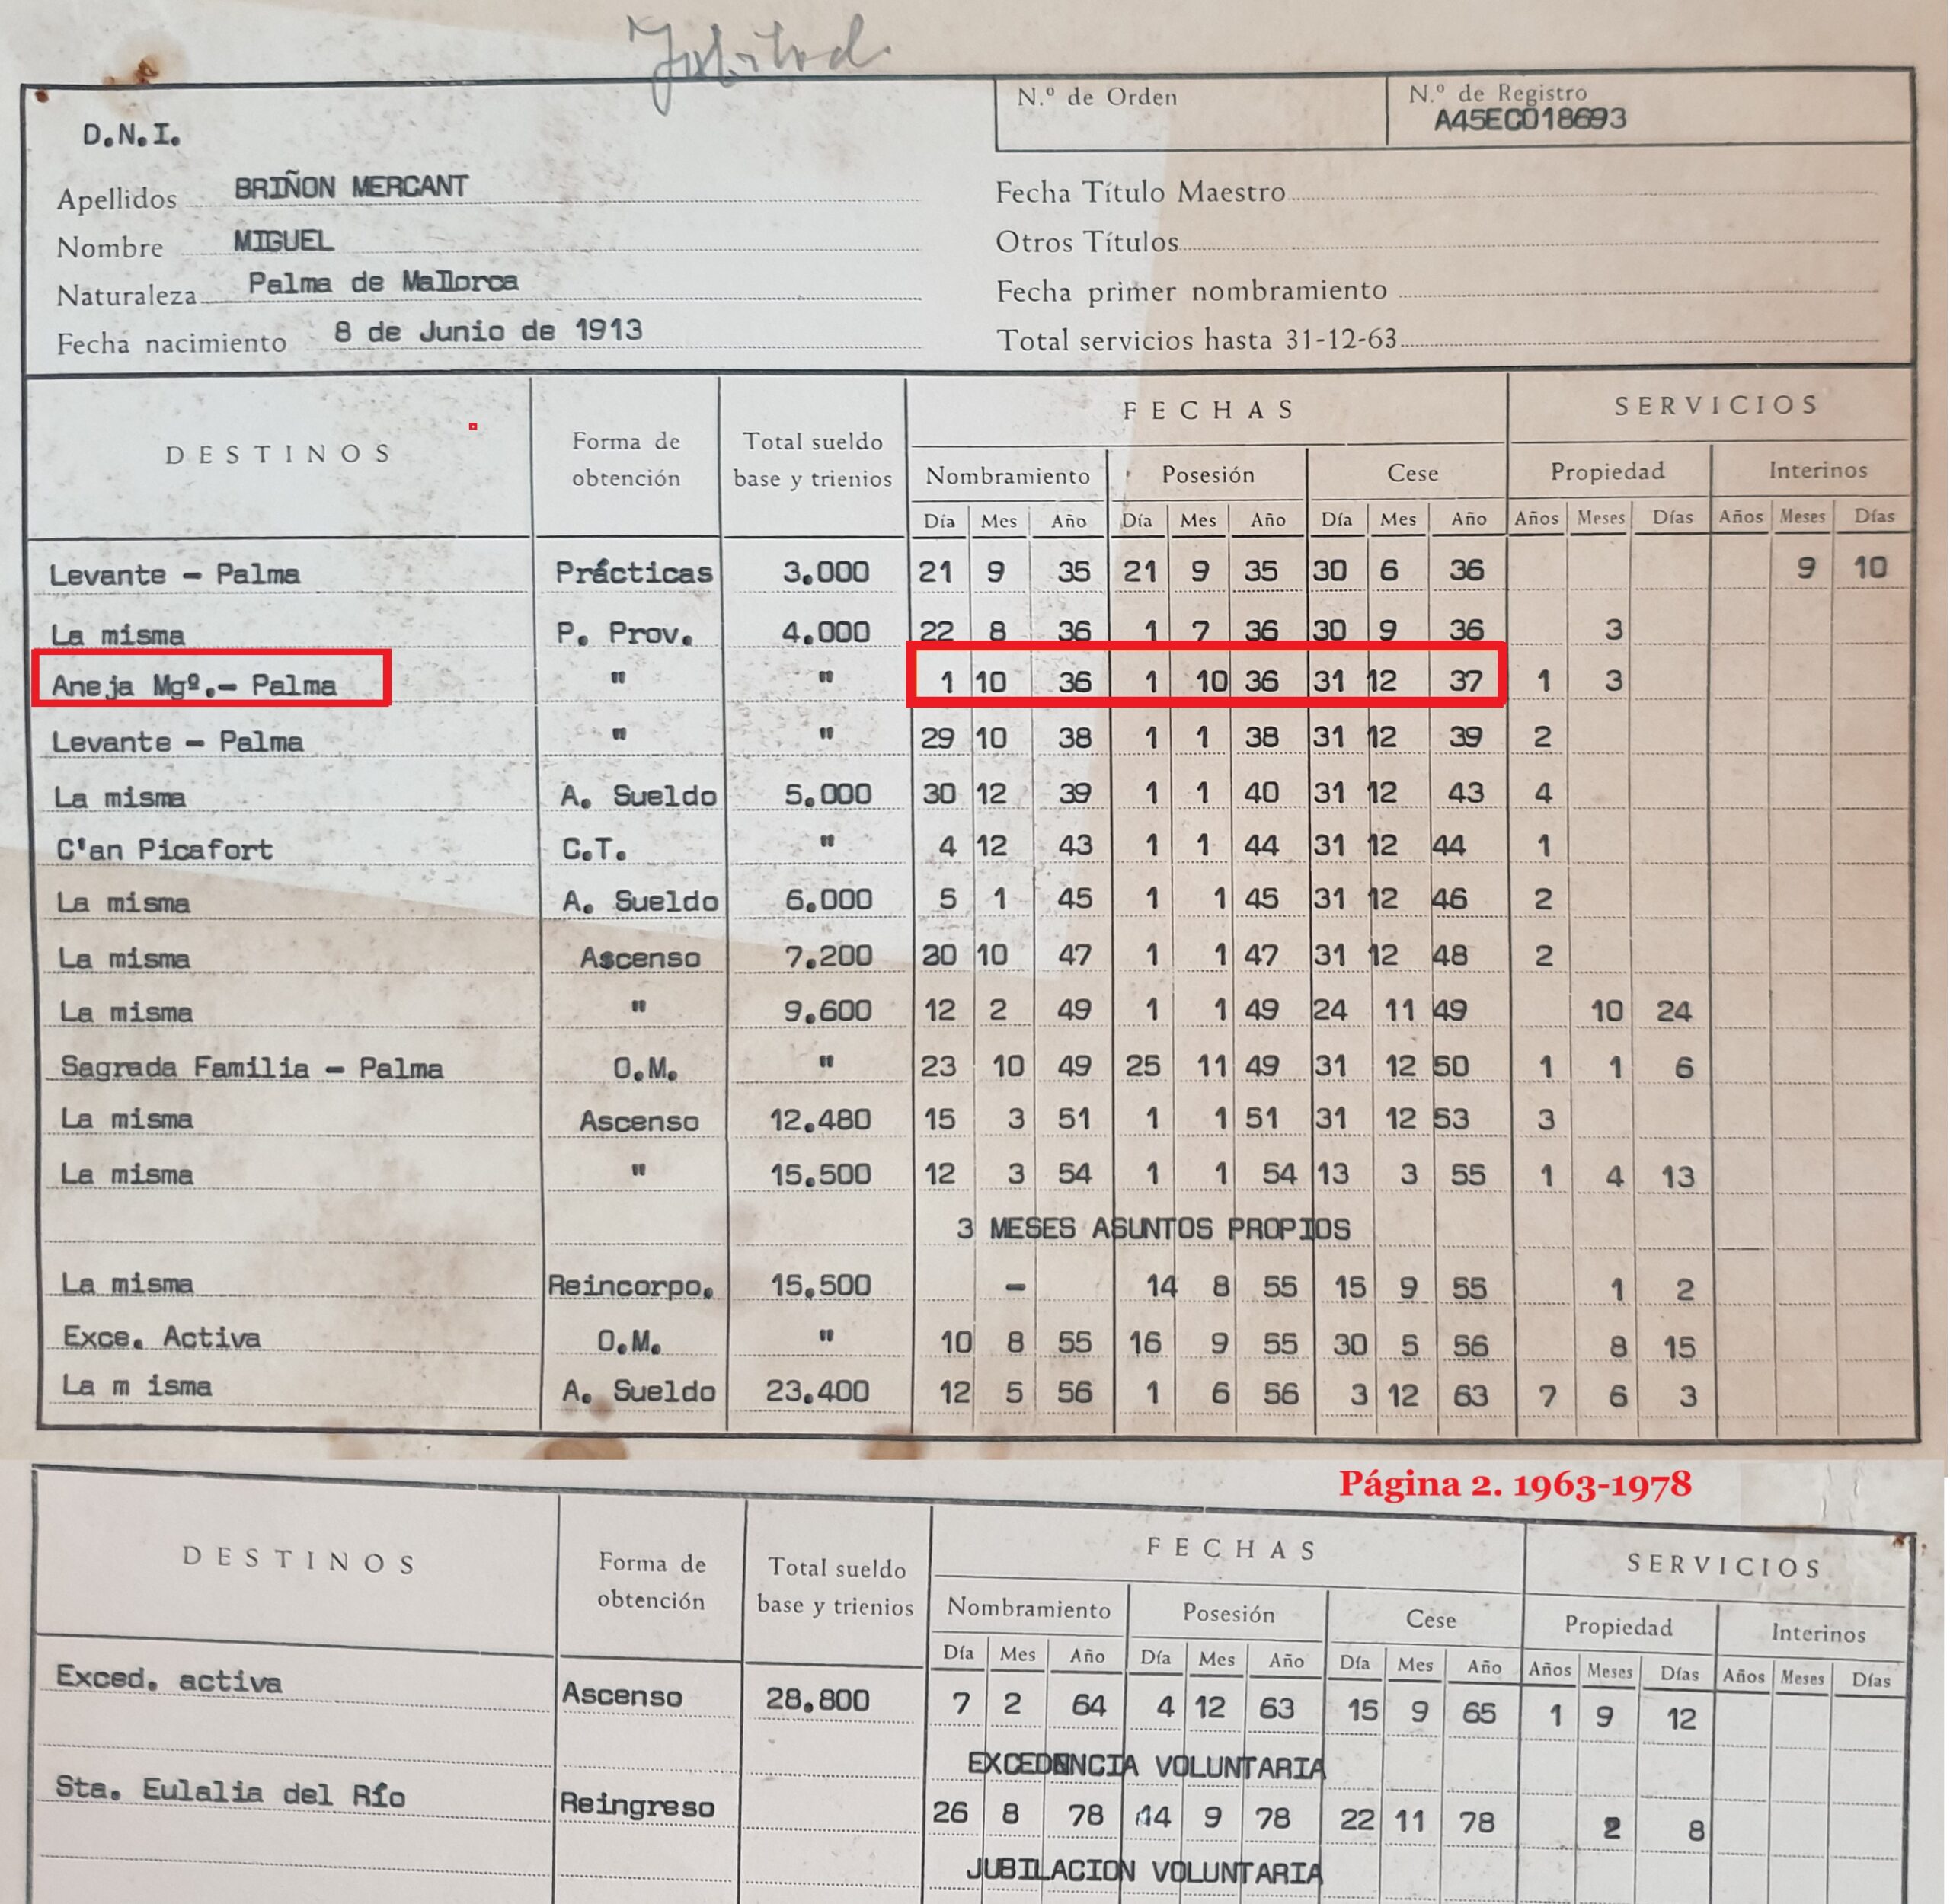 Jubilad
N.º de Orden
N.º de Registro
A45EC018693
D.N.I.
Apellidos BRIÑON MERCANT
Fecha Título Maestro
Nombre MIGUEL
Otros Títulos
Naturaleza Palma de Mallorca
Fecha primer nombramiento
Fecha nacimiento 8 de Junio de 1913
Total servicios hasta 31-12-63
FECHAS
SERVICIOS
DESTINOS
Forma de obtención
Total sueldo base y trienios
Nombramiento Posesión Cese Propiedad Interinos
Día Mes Año Día Mes Año Día Mes Año Años Meses Días Años Meses Días
Levante - Palma Prácticas 3.000 21 9 35 21 9 35 30 6 36 9 10
La misma P. Prov. 4.000 22 8 36 1 7 36 30 9 36 3
Aneja Mgº.- Palma " " 1 10 36 1 10 36 31 12 37 1 3
Levante - Palma " " 29 10 38 1 1 38 31 12 39 2
La misma A. Sueldo 5.000 30 12 39 1 1 40 31 12 43 4
C'an Picafort C.T. " 4 12 43 1 1 44 31 12 44 1
La misma A. Sueldo 6.000 5 1 45 1 1 45 31 12 46 2
La misma Ascenso 7.200 30 10 47 1 1 47 31 12 48 2
La misma " 9.600 12 2 49 1 1 49 24 11 49 10 24
Sagrada Familia - Palma O.M. " 23 10 49 25 11 49 31 12 50 1 1 6
La misma Ascenso 12.480 15 3 51 1 1 51 31 12 53 3
La misma " 15.500 12 3 54 1 1 54 13 3 55 1 4 13
3 MESES ASUNTOS PROPIOS
La misma Reincorpo. 15.500 - 14 8 55 15 9 55 1 2
Exce. Activa O.M. " 10 8 55 16 9 55 30 5 56 8 15
La m isma A. Sueldo 23.400 12 5 56 1 6 56 3 12 63 7 6 3
Página 2. 1963-1978
FECHAS
SERVICIOS
DESTINOS
Forma de obtención
Total sueldo base y trienios
Nombramiento Posesión Cese Propiedad Interinos
Día Mes Año Día Mes Año Día Mes Año Años Meses Días Años Meses Días
Exced. activa Ascenso 28.800 7 2 64 4 12 63 15 9 65 1 9 12
EXCEDENCIA VOLUNTARIA
Sta. Eulalia del Río Reingreso 26 8 78 14 9 78 22 11 78 2 8
JUBILACION VOLUNTARIA